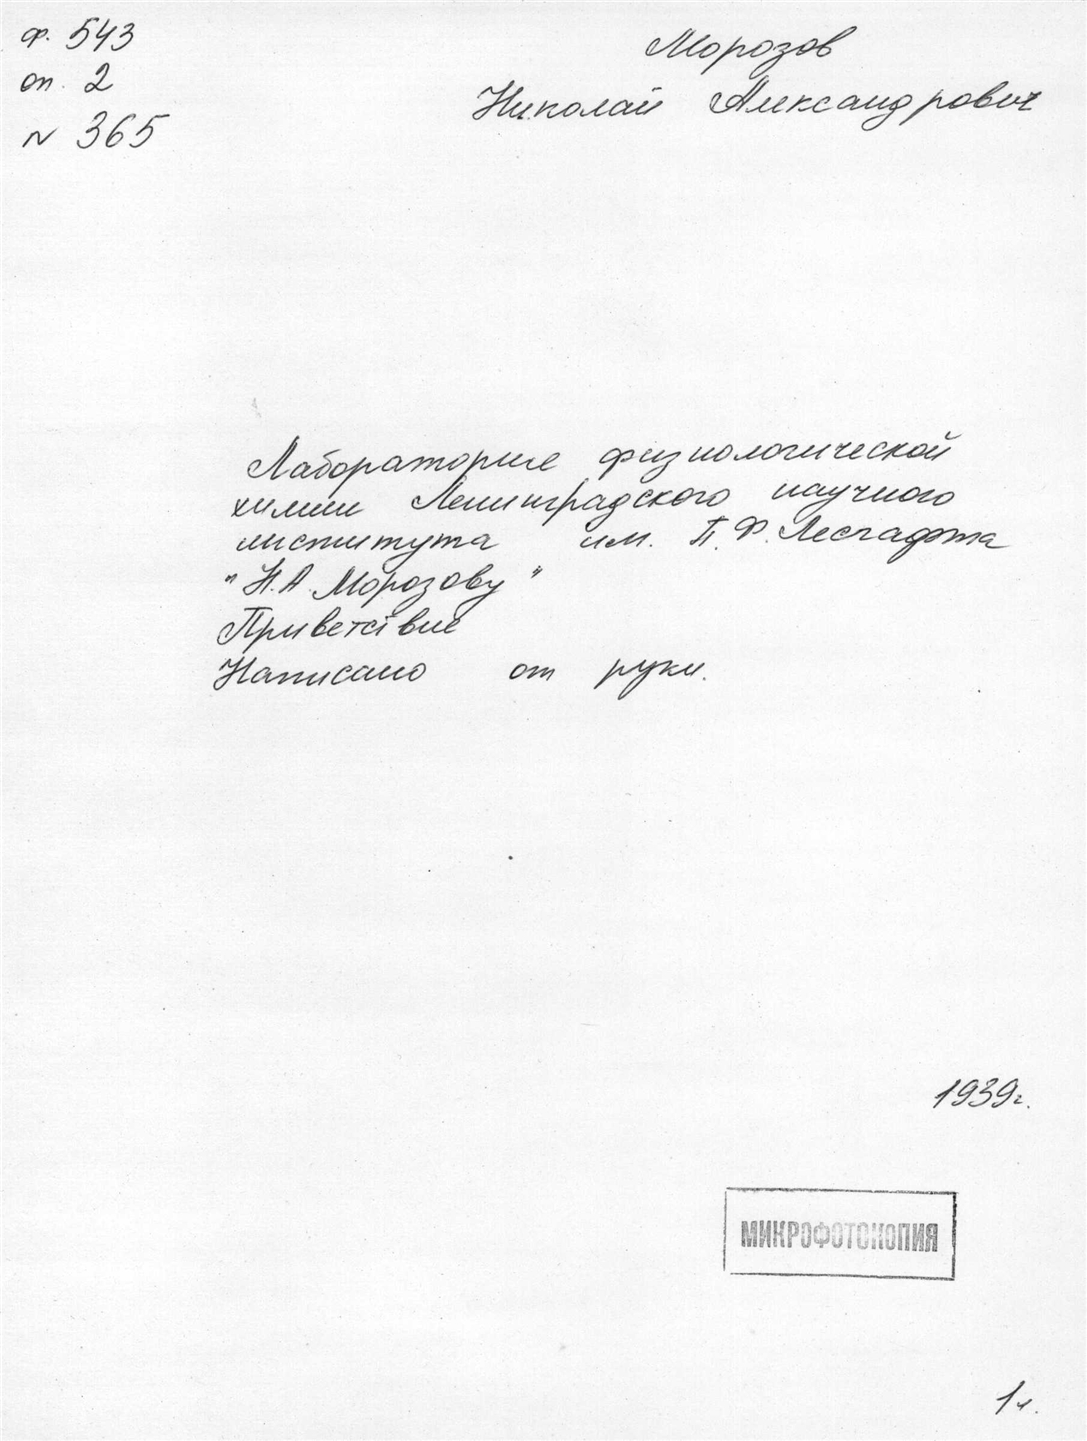 ф. 543
оп. 2
N 365
Морозов
Николай Александрович
Лаборатория физиологической
химии Ленинградского научного
института им. П.Ф. Лесгафта
"Н.А. Морозову"
Приветствие
Написано от руки.
1939г.
МИКРОФОТОКОПИЯ
1л.